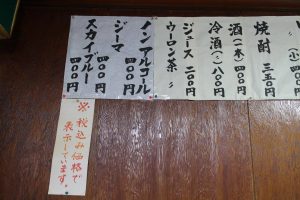 (小)四〇〇
焼酎 三五〇円
酒(一本)四〇〇円
冷酒(〃)八〇〇円
ジュース 二〇〇円
ウーロン茶 〃
ノンアルコール 四〇〇円
ジーマ 四〇〇円
スカイブルー 四〇〇円
※税込み価格で
表示しています。